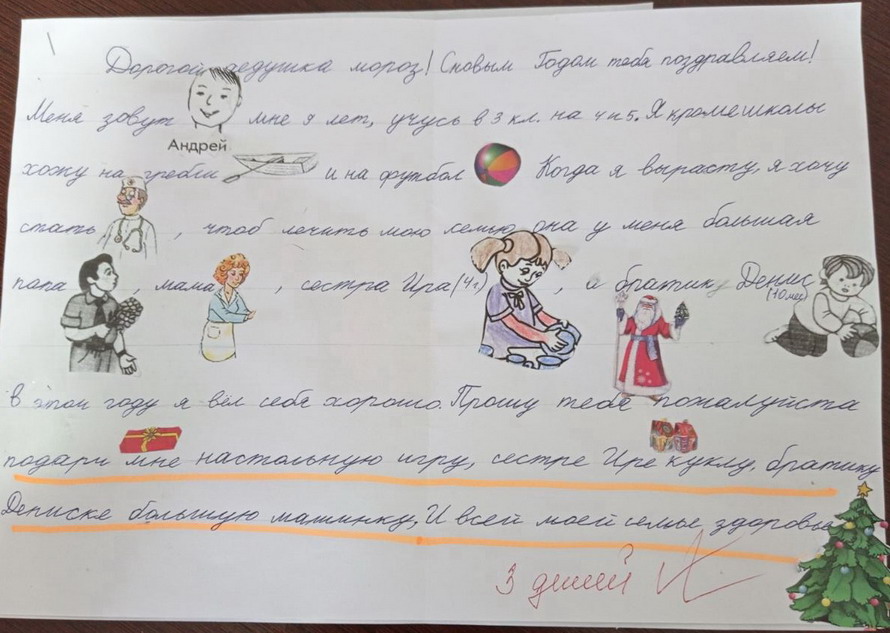 Дорогой дедушка мороз! Сновым Годом тебя поздравляем!
Меня зовут Андрей мне 9 лет, учусь в 3 кл. на 4 и 5. Я кроме школы
хожу на гребли и на футбол Когда я вырасту, я хочу
стать , чтоб лечить мою семью она у меня большая
папа , мама , сестра Ира (4г) , и братик Денис
(10 мес)
в этом году я вел себя хорошо. Прошу тебя пожалуйста
подари мне настольную игру, сестре Ире куклу, братику
Дениске большую машинку, И всей моей семье здоровья
3 детей